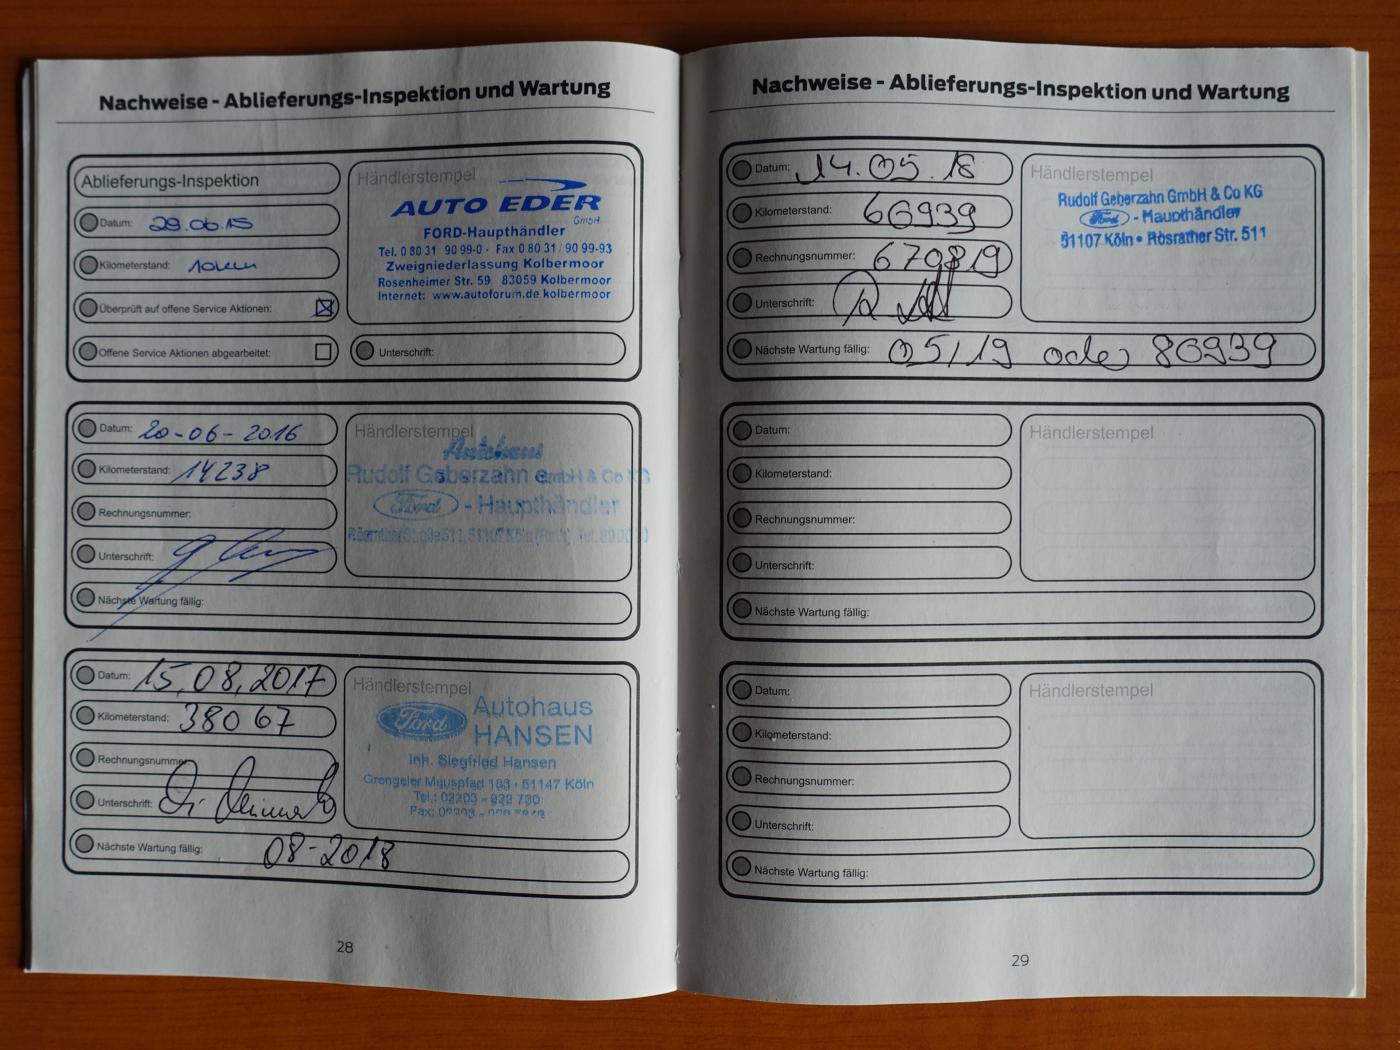 Nachweise - Ablieferungs-Inspektion und Wartung
Ablieferungs-Inspektion
Datum: 29.06.15
Kilometerstand: 10km
Überprüft auf offene Service Aktionen:
Offene Service Aktionen abgearbeitet:
Händlerstempel
AUTO EDER
GmbH
FORD-Haupthändler
Tel. 0 80 31 90 99-0 · Fax 0 80 31/ 90 99-93
Zweigniederlassung Kolbermoor
Rosenheimer Str. 59 83059 Kolbermoor
Internet: www.autoforum.de kolbermoor
Unterschrift:
Datum: 20-06-2016
Kilometerstand: 14238
Rechnungsnummer:
Unterschrift:
Nächste Wartung fällig:
Händlerstempel
Autohaus
Rudolf Geberzahn GmbH & Co KG
Ford - Haupthändler
Datum: 15,08,2017
Kilometerstand: 38067
Rechnungsnummer
Unterschrift:
Nächste Wartung fällig: 08-2018
Händlerstempel
Ford Autohaus
HANSEN
Inh. Siegfried Hansen
Grengeler Mauspfad 183 · 51147 Köln
Tel.: 02203 - 922 730
Fax: 02203 -
28
Nachweise - Ablieferungs-Inspektion und Wartung
Datum: 14.05.18
Kilometerstand: 66939
Rechnungsnummer: 670819
Unterschrift:
Nächste Wartung fällig: 05/19 oder 86939
Händlerstempel
Rudolf Geberzahn GmbH & Co KG
Ford - Haupthändler
51107 Köln • Rösrather Str. 511
Datum:
Kilometerstand:
Rechnungsnummer:
Unterschrift:
Nächste Wartung fällig:
Händlerstempel
Datum:
Kilometerstand:
Rechnungsnummer:
Unterschrift:
Nächste Wartung fällig:
Händlerstempel
29